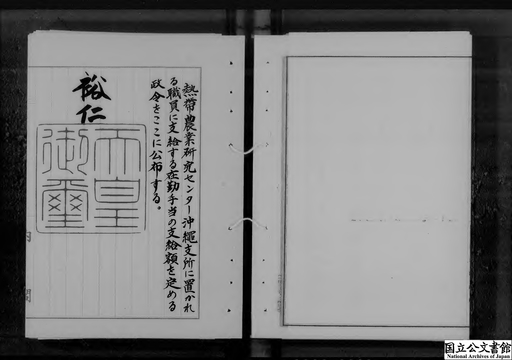 熱帯農業研究センター沖縄支所に置かれ
る職員に支給する在勤手当の支給額を定める
政令をここに公布する。
裕仁
天皇
御璽
国立公文書館
National Archives of Japan